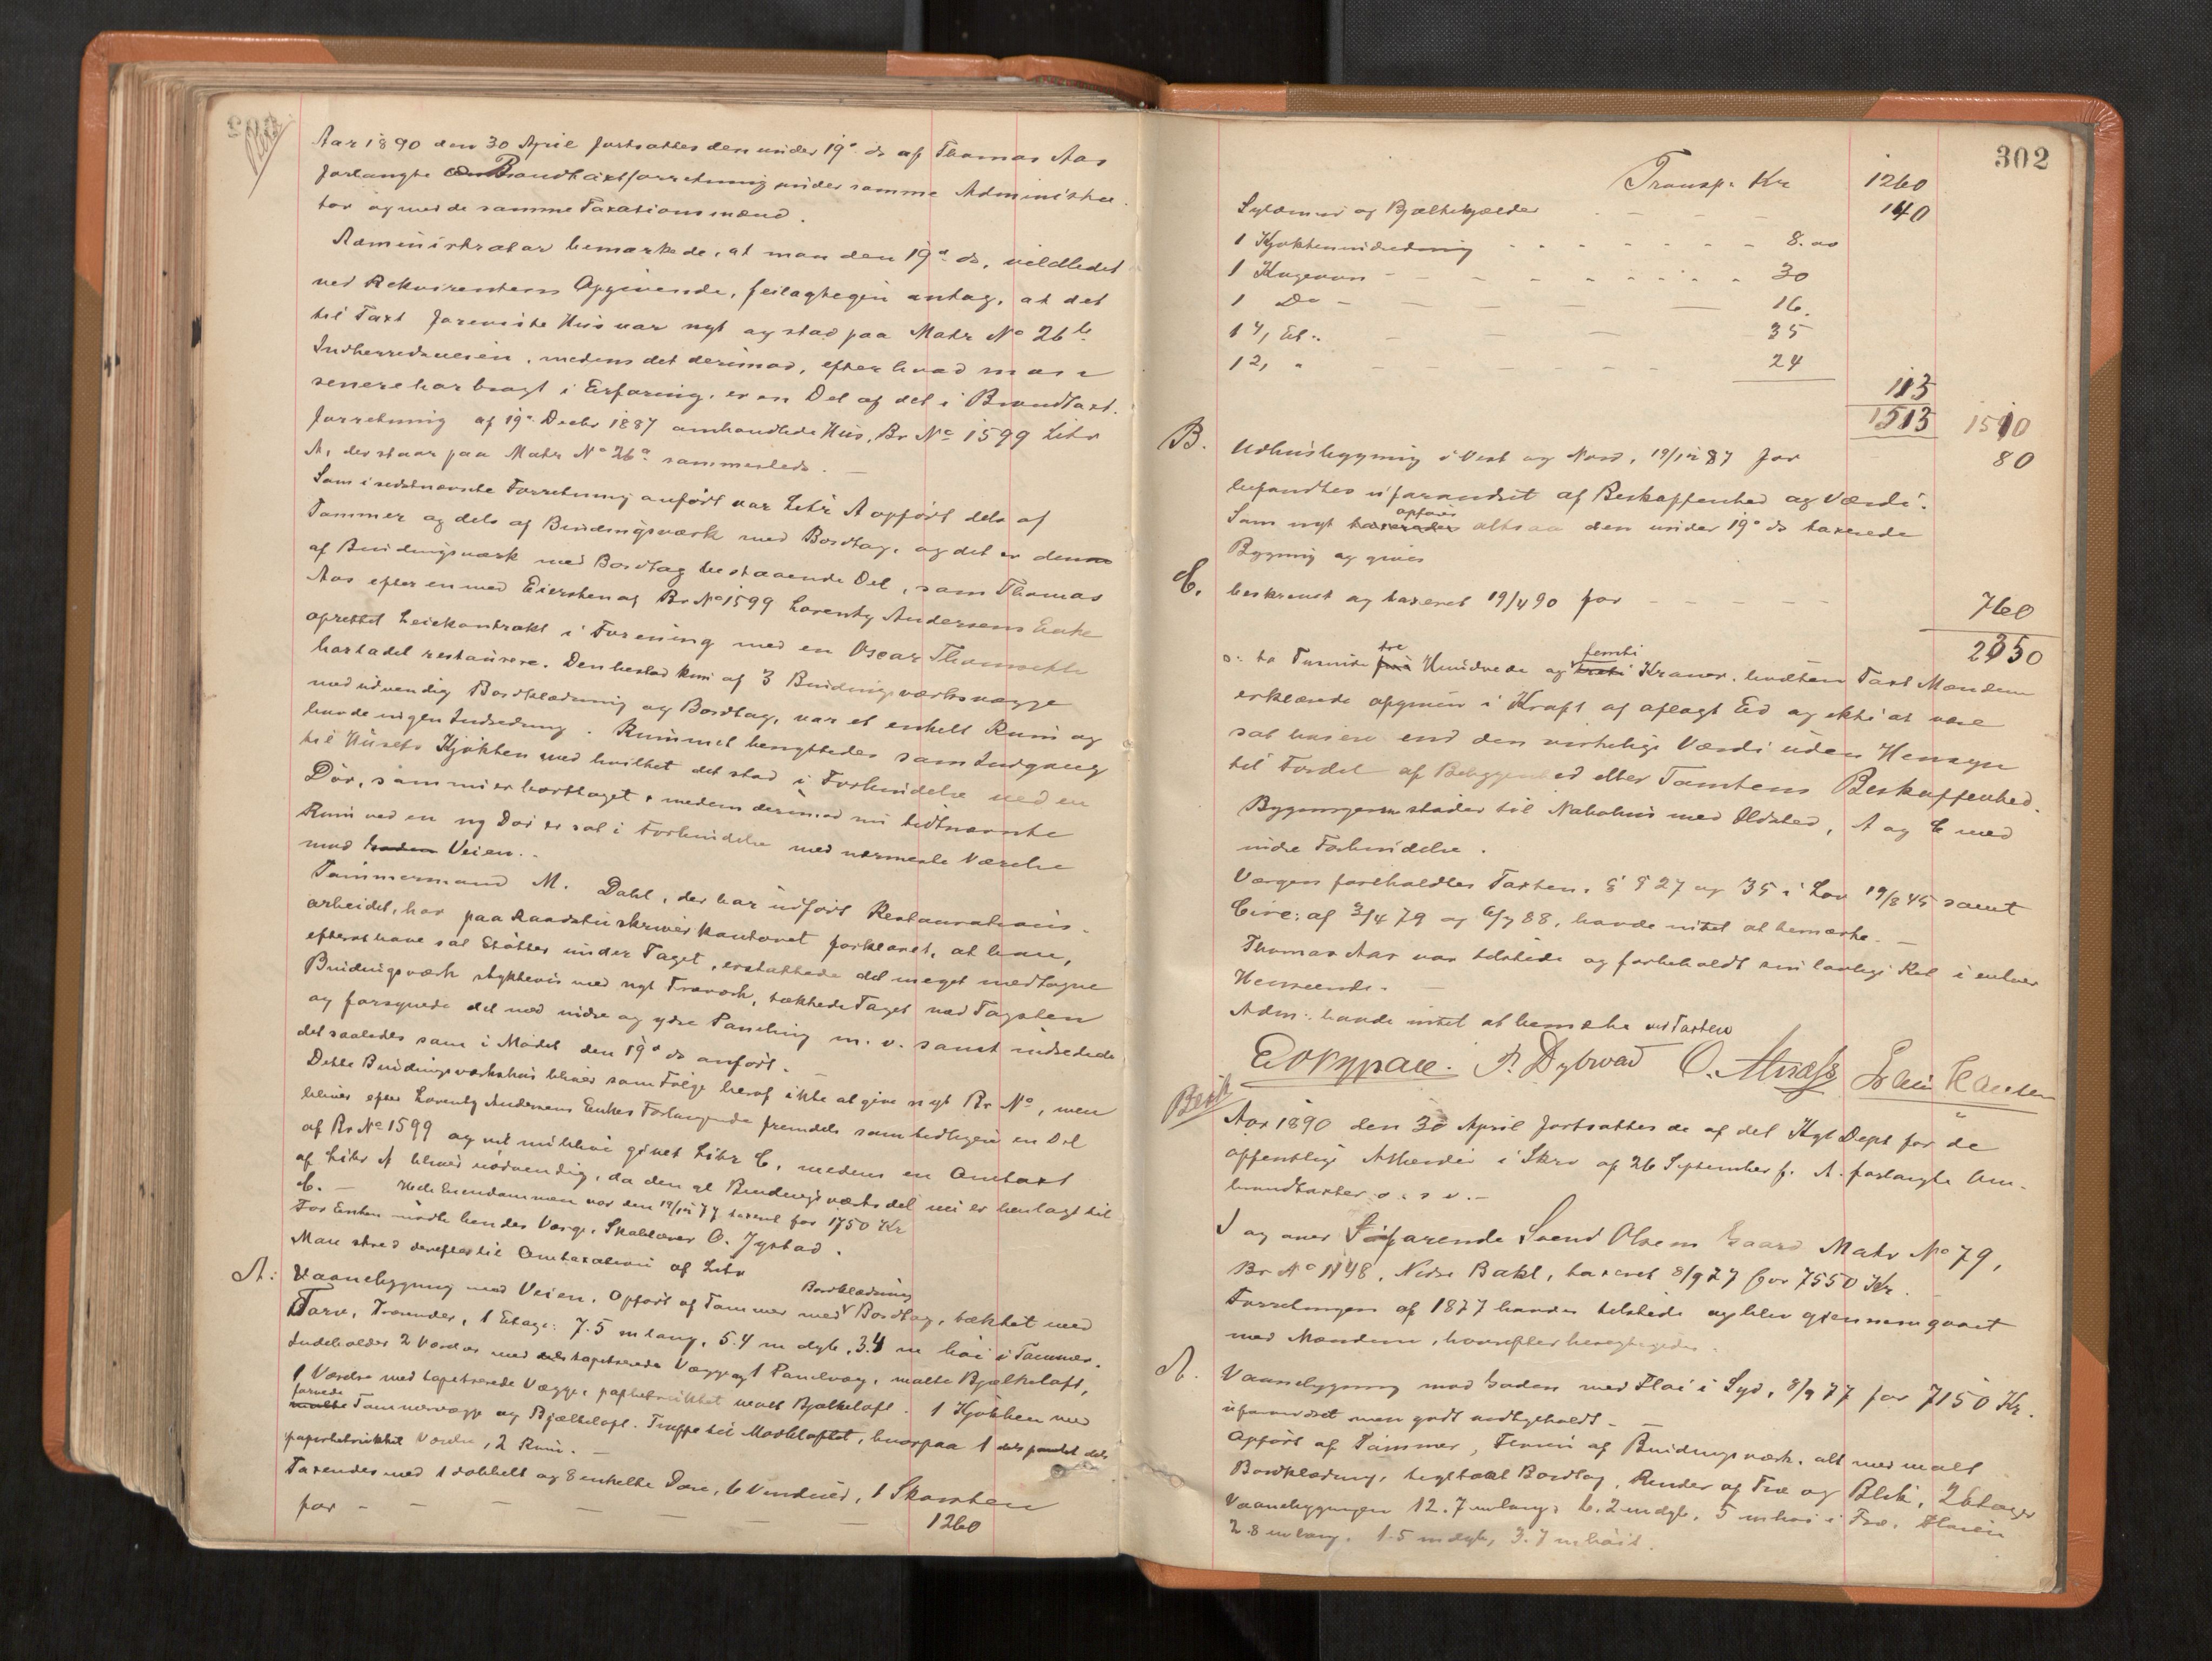 Aar 1890 den 30 April fortsattes den under 19de ds af Thomas Aas
forlangte Brandtaxtforretning under samme Administra-
tor og med de samme Taxationsmænd.
Administrator bemærkede, at man den 19de ds, vildledet
ved Rekvirentens Opgivende, feilagtigen antog, at det
til Taxt foreviste Hus var nyt og stod paa Matr No 26b
Indherredsveien, medens det derimod, efter hvad man
senere har bragt i Erfaring, er en Del af det i Brandtaxt-
forretning af 19de Decbr 1887 omhandlede Hus, Br No 1599 Litr
A, der staar paa Matr No 26a sammesteds. —
Som i sidstnævnte Forretning anført var Litr A opført dels af
Tømmer og dels af Bindingsværk med Bordtag, og det er denne
af Bindingsværk med Bordtag bestaaende Del, som Thomas
Aas efter en med Eiersken af Br No 1599 Lorentz Andersens Enke
oprettet Leiekontrakt i Forening med en Oscar
har ladet restaurere. Den bestod kun af 3 Bindingsværksvægge
med udvendig Bordklædning og Bordtag, var et enkelt Rum og
havde ingen Indredning. Rummet benyttedes som Indgang
til Husets Kjøkken med hvilket det stod i Forbindelse ved en
Dør, som nu er borttaget, medens derimod nu sidtnævnte
Rum ved en ny Dør er sat i Forbindelse med nærmeste Værelse
mod Gaden Veien.
Tømmermand M. Dahl, der har udført Restaurations-
arbeidet, har paa Raadstueskriverkontoret forklaret, at han,
efter at have sat Støtter under Taget, erstattede det meget medtagne
Bindingsværk stykkevis med nyt Træværk, tækkede Taget med Tagsten
og forsynede det med indre og ydre Paneling m. v. samt indredede
det saaledes som i Mødet den 19de ds anført. —
Dette Bindingsværkshus bliver som Følge heraf ikke at give nyt Br No, men
bliver efter Lorentz Andersens Enkes Forlangende fremdeles som tidligere en Del
af Br No 1599 og vil blive givet Litr C, medens en Omtaxt
af Litr A bliver nødvendig, da den gl Bindingsværksdel nu er henlagt til
C. — Hele Eiendommen var den 19/12 77 taxeret for 1750 Kr
For Enken mødte hendes Værge, Skolelærer O. Jystad.
Man skred derefter til Omtaxation af Litr
A: Vaanebygning mod Veien. Opført af Tømmer med Bordklædning Bordtag, tækket med
Torv, Trærender, 1 Etage: 7.5 m lang, 5.4 m dyb, 3.4 m høi i Tømmer.
Indeholder 2 Værelser med tapetserede Vægge og 1 Panelvæg, malte Bjælkeloft,
1 Værelse med tapetserede Vægge, papbetrukket malt Bjælkeloft. 1 Kjøkken med
malte farvede Tømmervægge og Bjælkeloft. Trappe til Mørkloftet, hvorpaa 1 dels panelet dels
papirbetrukket Værelse, 2 Rum. —
Taxeredes med 1 dobbelt og 8 enkelte Døre, 6 Vinduer, 1 Skorsten
for - - - - - 1260
302
Transp. Kr 1260
Sylæmur og Bjælkekjælder - - - 140
1 Kjøkkenindredning - - - 8.00
1 Kogeovn - - - 30
1 Do - - - 16.
1 4, Et. - - 35
1 2, " - - - 24
113
1513 1510
B. Udhusbygning i Vest og Nord, 19/12 87 for 80
befandtes uforandret af Beskaffenhed og Værdi.
Som nyt taxeredes opføres altsaa den under 19de ds taxerede
Bygning og gives
C. beskrevet og taxeret 19/4 90 for - - - 760
2350
o: to Tusinde tre Hundrede og femti Kroner, hvilken Taxt Mændene
erklærede afgiven i Kraft af aflagt Ed og ikke at være
sat høiere end den virkelige Værdi uden Hensyn
til Fordel af Beliggenhed eller Tomtens Beskaffenhed.
Bygningerne støder til Nabohus med Ildsted, A og C med
indre Forbindelse.
Værgen foreholdtes Taxten, § § 27 og 35 i Lov 19/8 45 samt
Circ: af 3/4 79 og 6/7 88, havde intet at bemærke. —
Thomas Aas var tilstede og forbeholdt sin lovlige Ret i enhver
Henseende. —
Adm: havde intet at bemærke ved Taxten
P. Dybwad O. Næss
Besk
Aar 1890 den 30 April fortsattes de af det Kgl Dept for de
offentlige Arbeider i Skrv af 26 September f. A. forlangte Om-
brandtaxter o. s. v. —
I og over Søfarende Svend Olsens Gaard Matr No 79,
Br No 1148, Nedre Bakl, taxeret 8/9 77 for 7550 Kr.
Forretningen af 1877 havdes tilstede og blev gjennemgaaet
med Mændene, hvorefter besigtigedes.
A. Vaanebygning mod Gaden med Fløi i Syd, 8/9 77 for 7150 Kr.
uforandret men godt vedligeholdt. —
Opført af Tømmer, Fløien af Bindingsværk, alt med malt
Bordklædning, teglhængt Bordtag, Render af Træ og Blik, 2 Etager
Vaanebygningen 12.7 m lang, 6.2 m dyb, 5 m høi i Træ. Fløien
2.8 m lang, 1.5 m dyb, 3.7 m høi.